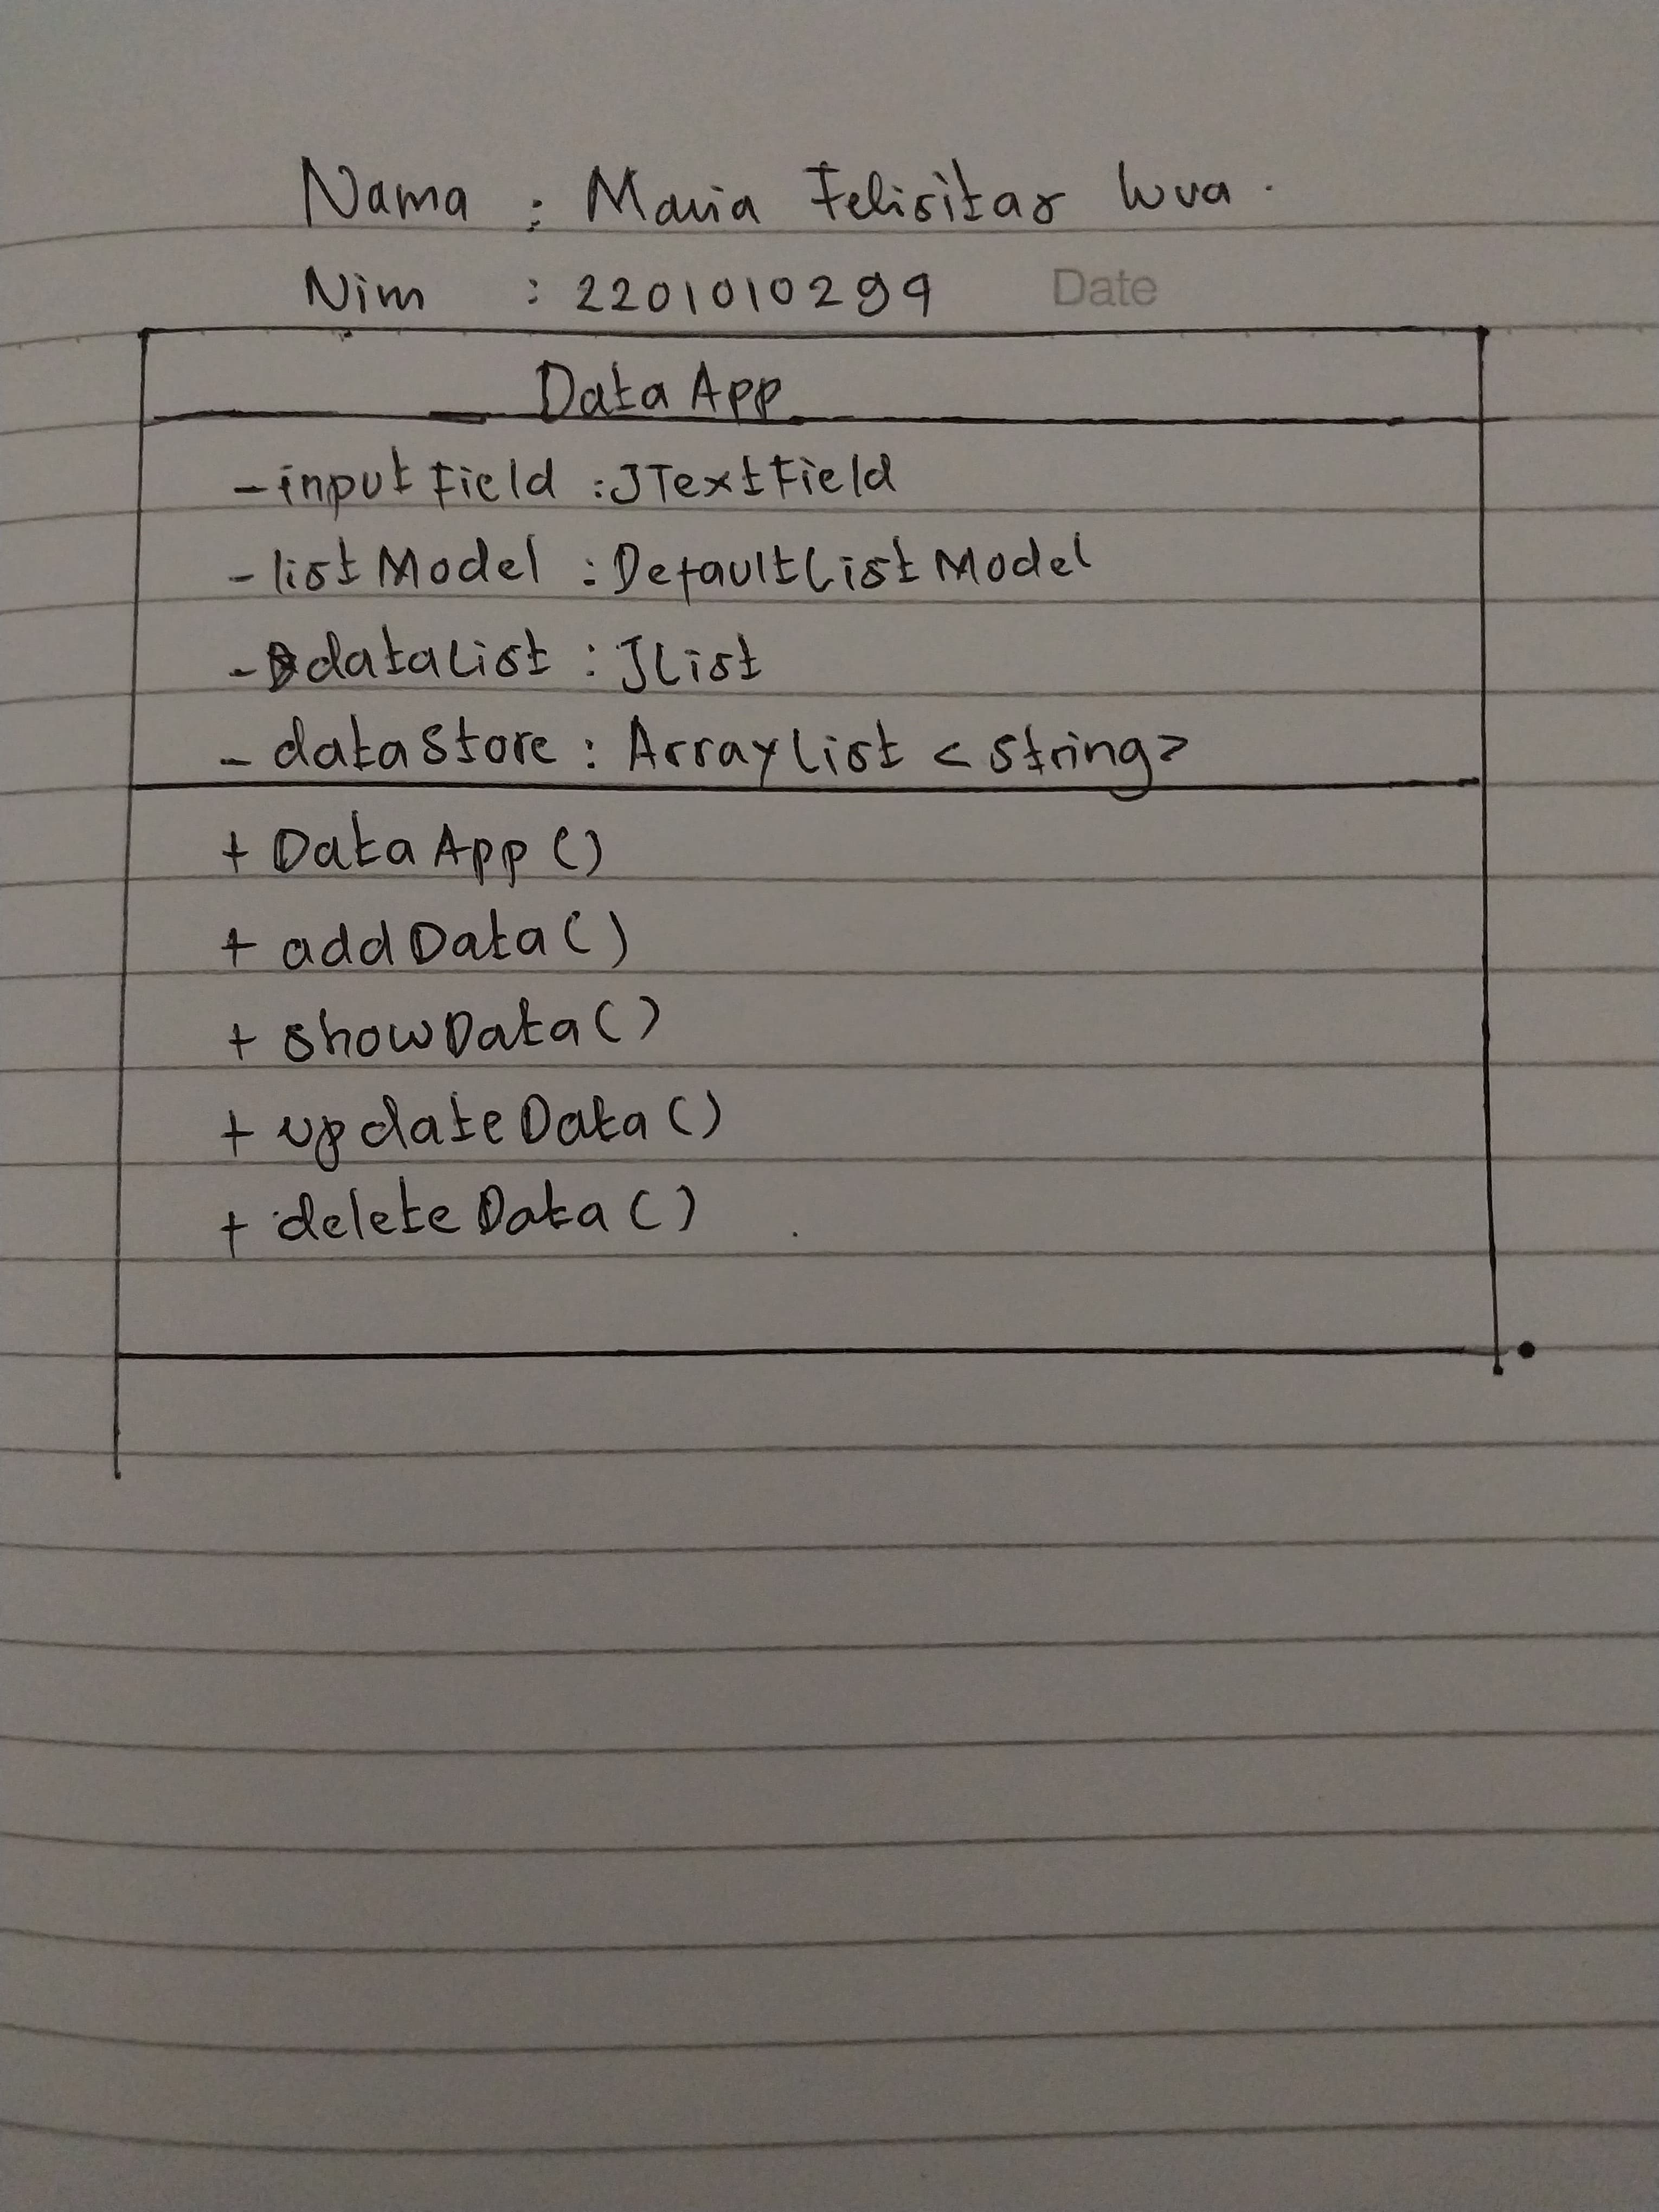 Nama : Maria Felisitas Wua.
Nim : 2201010299
Date
DataApp
- inputField : JTextField
- listModel : DefaultListModel
- dataList : JList
- dataStore : ArrayList <String>
+ DataApp ()
+ addData ()
+ showData ()
+ updateData ()
+ deleteData ()